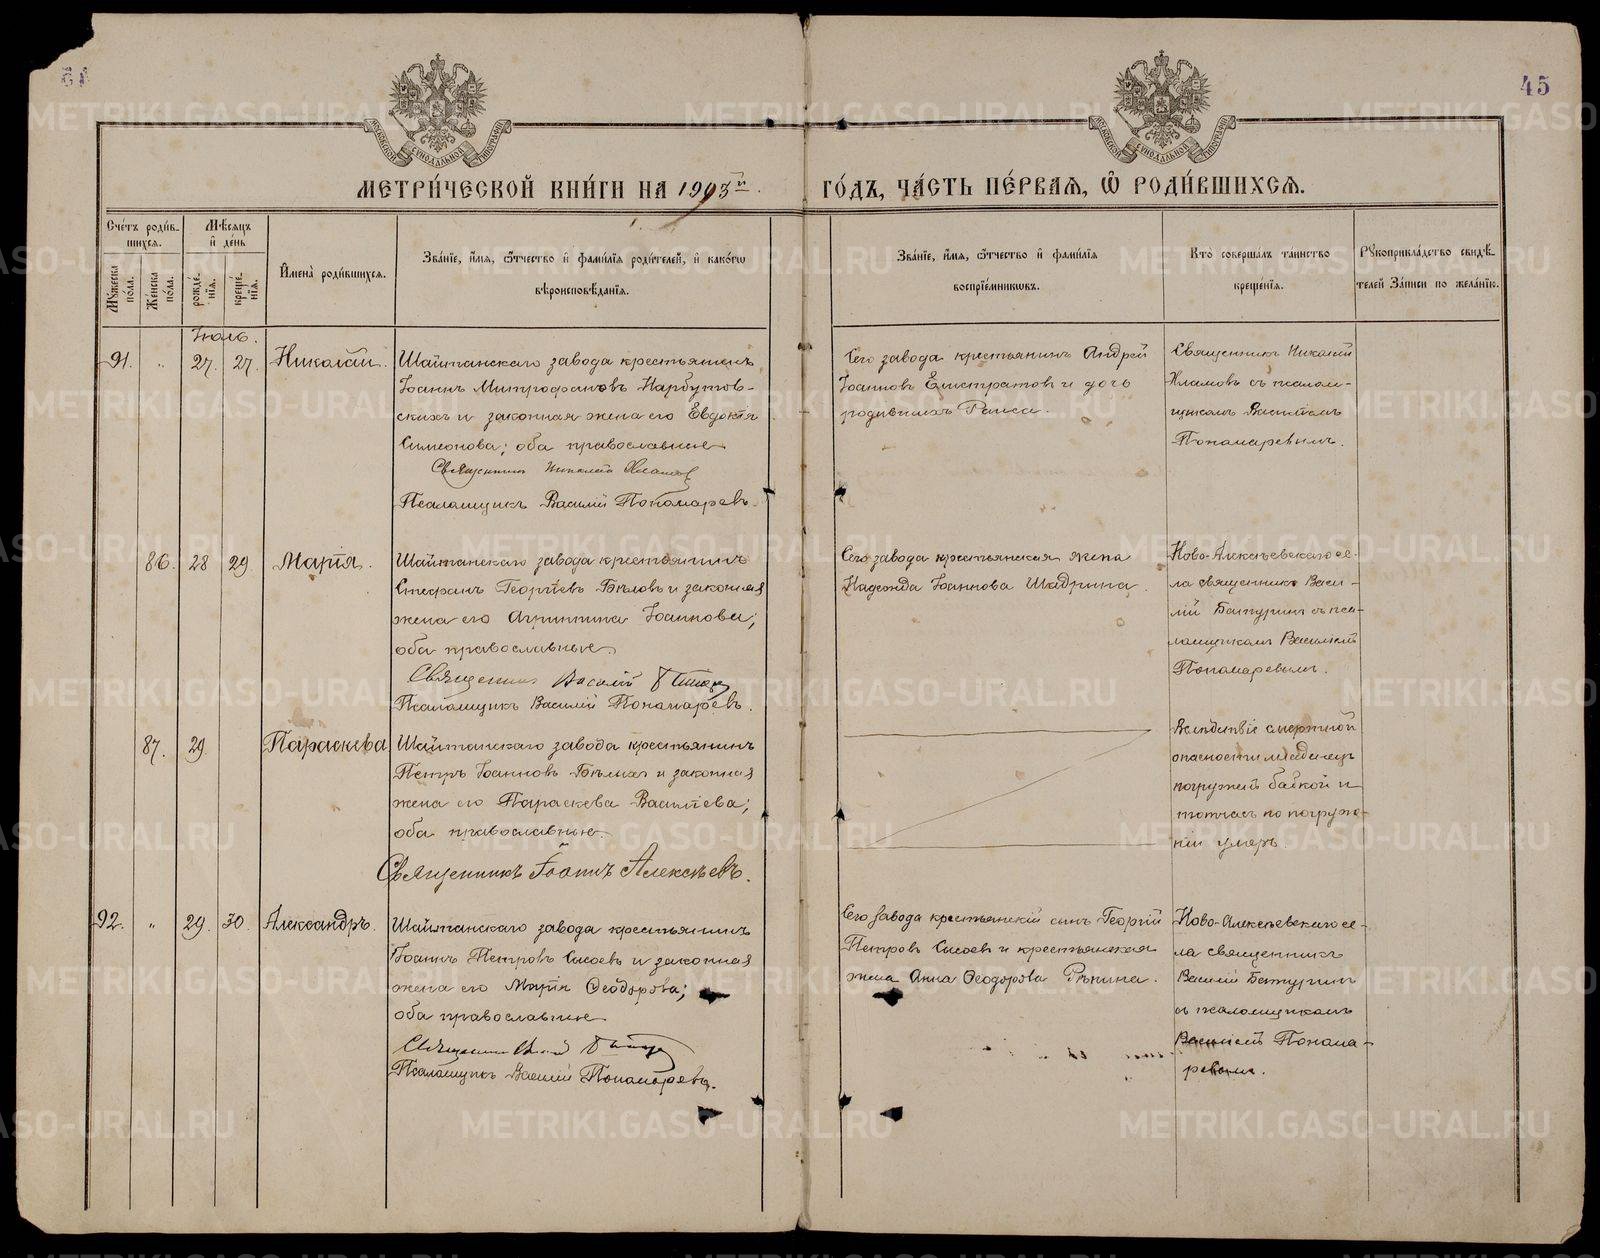 45
МОСКОВСКОЙ СУНОДАЛЬНОЙ ТИПОГРАФІИ
МОСКОВСКОЙ СУНОДАЛЬНОЙ ТИПОГРАФІИ
МЕТРИ́ЧЕСКОЙ КНИ́ГИ НА 1903й. ГО́ДЪ, ЧА́СТЬ ПЕ́РВАЯ, Ѡ РОДИ́ВШИХСЯ.
Сче́тъ роди́в-
шихся.
Мѣ́сяцъ
и день
Му́жеска по́ла.
Же́нска по́ла.
рожде́нїя.
креще́нїя.
И҆мена̀ роди́вшихся.
Зва́нїе, и҆́мя, ѻ҆́тчество и҆ фами́лїя роди́телей, и҆ како́гѡ
вѣроисповѣ́данїя.
Зва́нїе, и҆́мя, ѻ҆́тчество и҆ фами́лїя
воспрїе́мникѡвъ.
Кто̀ соверша́лъ та́инство
креще́нїя.
Рукоприкла́дство свидѣ́-
телей за́писи по жела́нїю.
Іюль.
91. „ 27. 27. Николай.
Шайтанскаго завода крестьянинъ
Іоаннъ Митрофановъ Нарбутов-
скихъ и законная жена его Евдокія
Симеонова; оба православные
Священникъ Николай
Псаломщикъ Василій Пономаревъ.
Сего завода крестьянинъ Андрей
Іоанновъ Елистратовъ и дочь
родившихъ Раиса.
Священникъ Николай
съ псалом-
щикомъ Василіемъ
Пономаревымъ.
86. 28 29. Марія.
Шайтанскаго завода крестьянинъ
Стефанъ Георгіевъ Бѣловъ и законная
жена его Агриппина Іоаннова;
оба православные
Священникъ Василій
Псаломщикъ Василій Пономаревъ.
Сего завода крестьянская жена
Надежда Іоаннова Шадрина.
Ново-Алексѣевскаго се-
ла священникъ Васи-
лій Батуринъ съ пса-
ломщикомъ Василіемъ
Пономаревымъ.
87. 29. Параскева
Шайтанскаго завода крестьянинъ
Петръ Іоанновъ Бѣлыхъ и законная
жена его Параскева Васильева;
оба православные.
Священникъ Іоаннъ Алексѣевъ.
Вслѣдствіе смертной
опасности младенецъ
погруженъ бабкой и
тотчасъ по погруже-
ніи умеръ.
92. „ 29. 30. Александръ.
Шайтанскаго завода крестьянинъ
Іоаннъ Петровъ Сысоевъ и законная
жена его Марія Ѳеодорова;
оба православные
Священникъ
Псаломщикъ Василій Пономаревъ.
Сего завода крестьянскій сынъ Георгій
Петровъ Сысоевъ и крестьянская
жена Анна Ѳеодорова Рѣпина.
Ново-Алексѣевскаго се-
ла священникъ
Василій Батуринъ
съ псаломщикомъ
Василіемъ Понома-
ревымъ.
METRIKI.GASO-URAL.RU